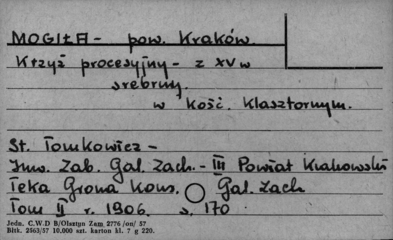 MOGIŁA - pow. Kraków.
Krzyż procesyjny - z XV w
srebrny.
w Kość. Klasztornym.
St. Tomkowicz -
Inw. Zab. Gal. Zach. - III Powiat Krakowski
Teka Grona Kons. Gal. Zach
Tom II r. 1906. s. 170
Jedn. C.W.D B/Olsztyn Zam 2776 /on/ 57
Bltk. 2563/57 10.000 szt. karton kl. 7 g 220.